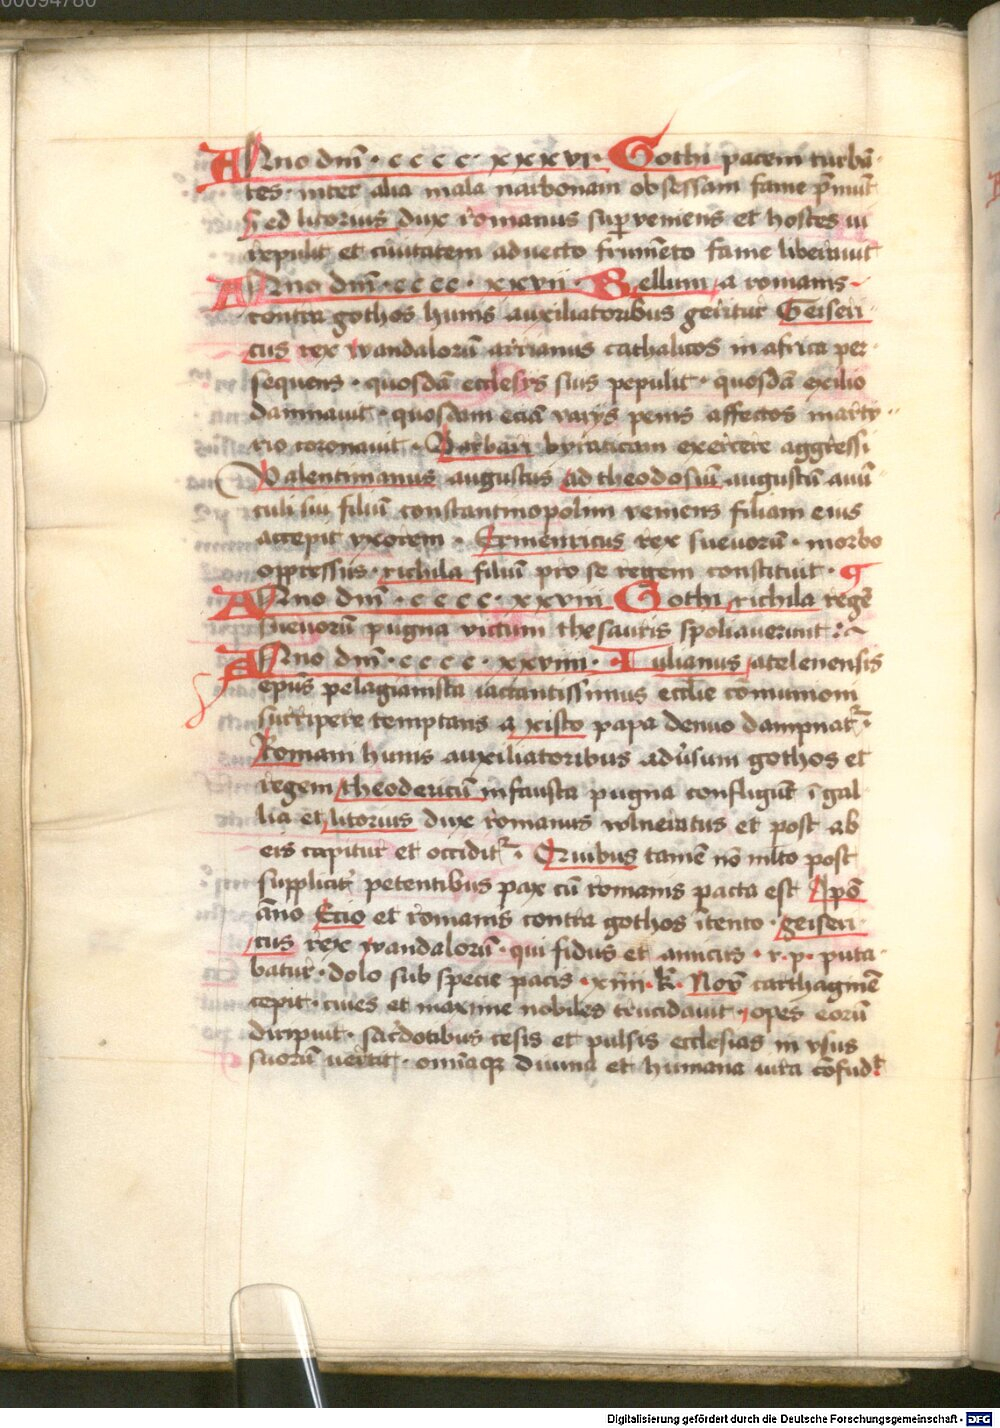 00094780
Anno dm̄ · c c c c · xxxvi · Gothi pacem turbā·
tes · inter alia mala narbonam obsessam fame p̄mūt
Sed litorius dux romanus superveniens et hostes ui
repulit et ciuitatem aduecto frumēto fame liberauit
Anno dm̄ · cccc · xxxvii · Bellum a romanis
contra gothos hunis auxiliatoribus geritur Geiseri
cus rex wandalorū arrianus catholicos in africa per
sequens · quosdā ecclesijs suis pepulit · quosdā exilio
damnauit · quosdam eciā varijs penis affectos marty
rio coronauit · Barbari byraticam exercere aggressi
Valentinianus augustus ad theodosiū augustū auū
culi sui filiū constantinopolim veniens filiam eius
accepit vxorem · Ermenricus rex sueuorū · morbo
oppressus · richila filiū pro se regem constituit ·
Anno dm̄ · c c c c · xxxviii Gothi richila regē
sueuorū pugna victum thesauris spoliauerunt
Anno dm̄ · c c c c · xxxviiii · Iulianus atelenensis
ep̄us pelagianista iactantissimus ecclie cōmuniom
surripere temptans a xisto papa denuo dampnat᷑ ·
Romani hunis auxiliatoribus aduersum gothos et
regem theodericū infausta pugna confligūt ī gal
lia et litorius dux romanus wlneratus et post ab
eis capitur et occidit᷑ · Quibus tamē nō mlto post
suppliciter petentibus pax cū romanis pacta est Ipō
āno Ecio et romanis contra gothos ītento · geiseri
cus rex wandalorū · qui fidus et amicus · r · p · puta
batur · dolo sub specie pacis · xiiii · k̄ · Nov̄ carthaginē
cepit · ciues et maxime nobiles trucidauit · opes eorū
diripuit · sacerdotibus cesis et pulsis ecclesias in vsus
suorū uertit · omīaqꝫ diuina et humana iura cōfud᷑
Digitalisierung gefördert durch die Deutsche Forschungsgemeinschaft - DFG